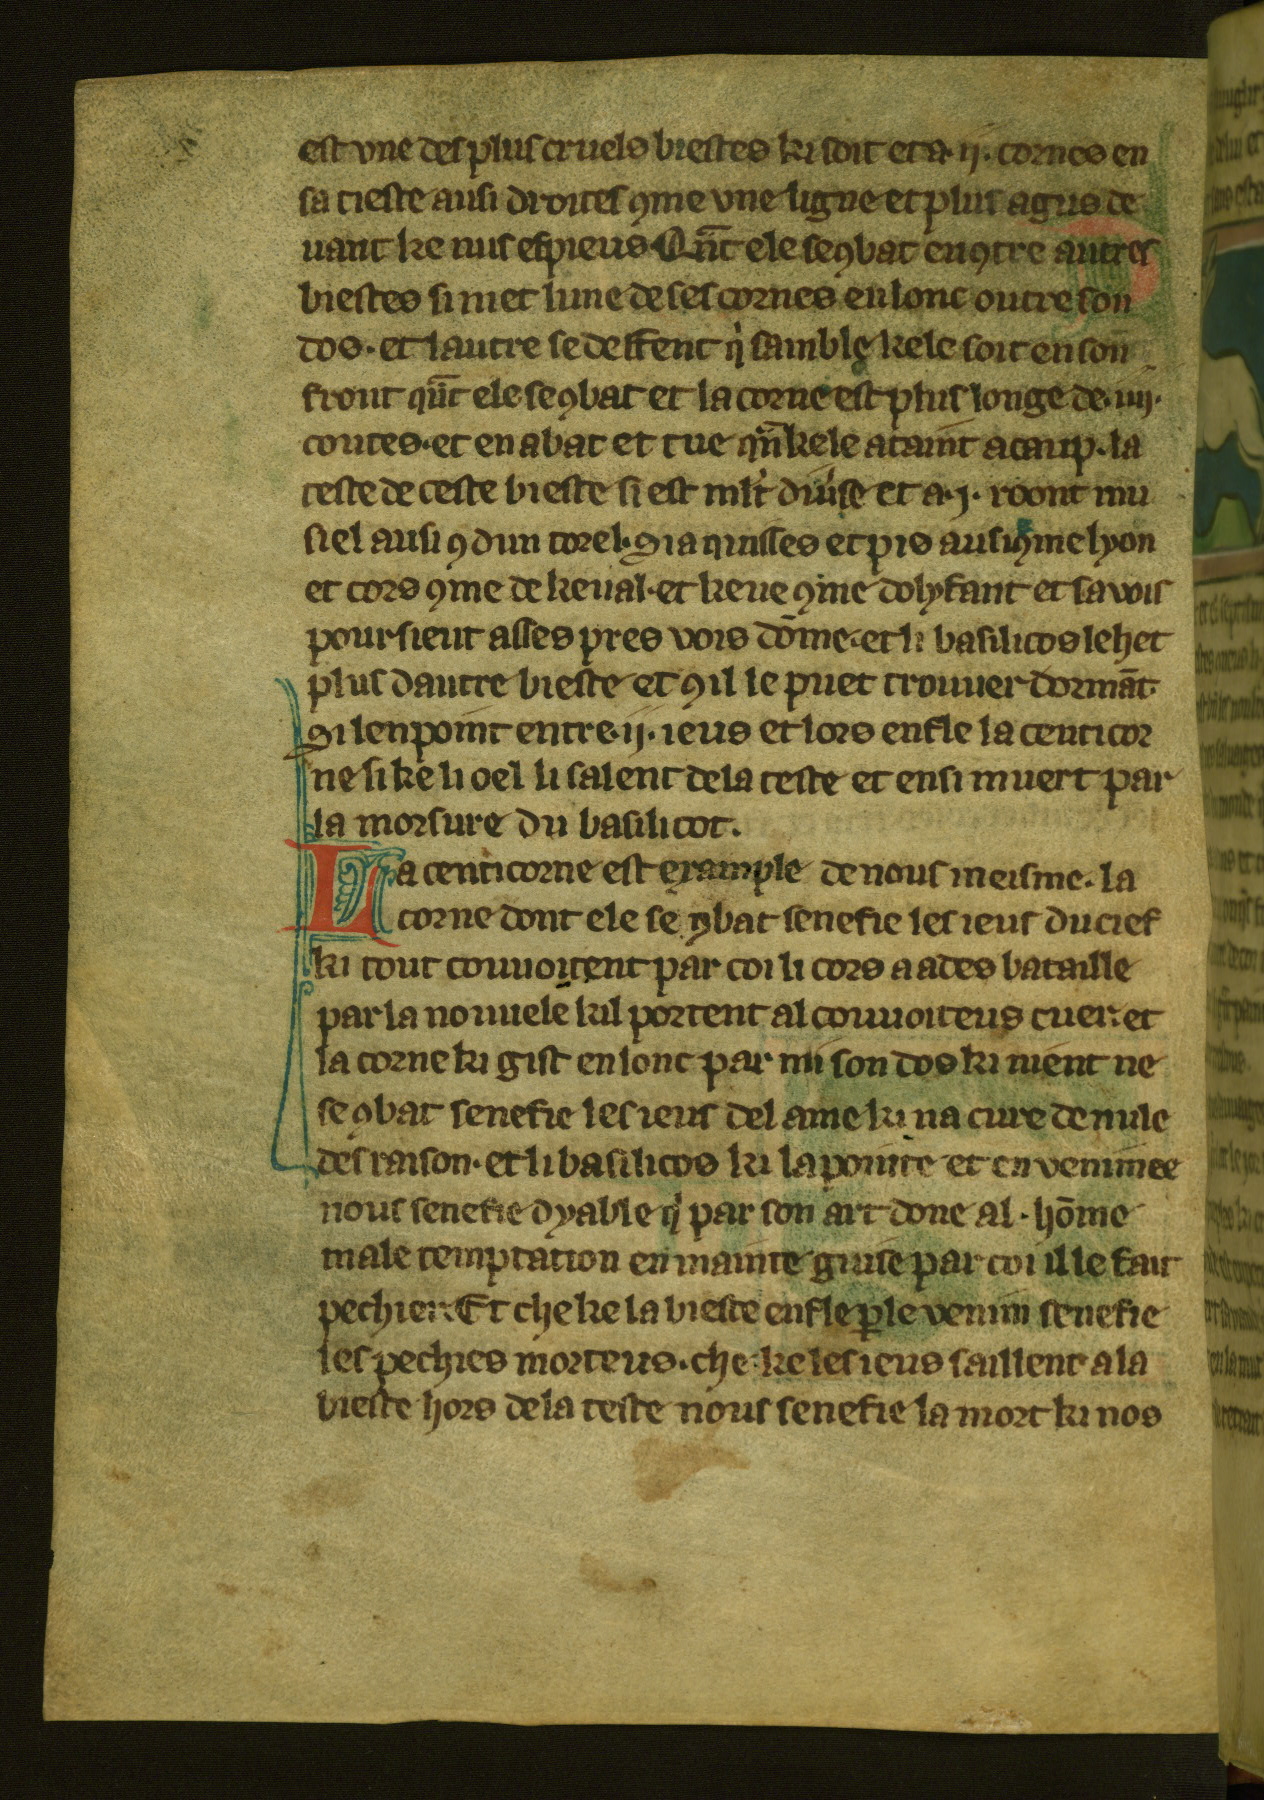 est vne des plus cruels biestes ki soit et a .ij. cornes en
sa tieste ausi droites ꝯme vne ligne et plus agus de
uant ke nus espieus. Qn̄t ele se ꝯbat enꝯtre autres
biestes si met lune de ses cornes en lonc outre son
dos. et lautre se deffent qͥ samble kele soit en son
front qn̄t ele se ꝯbat et la corne est plus longe de .iiij.
coutes. et en abat et tue qn̄kele ataint a caup. la
teste de ceste bieste si est mlt diuise et a .j. roont mu
siel ausi ꝯ dun torel. Si a quisses et pis ausi ꝯme lyon
et cors ꝯme de keual. et keue ꝯme dolyfant et sa vois
pour sieut asses pres vois dōme. et li basilicos le het
plus dautre bieste et ꝯ il le puet trouuer dormāt.
Si lenpoint entre .ij. ieus et lors enfle la centicor
ne si ke li oel li salent de la teste et ensi muert par
la morsure du basilicot.
La centicorne est example de nous meisme. la
corne dont ele se ꝯbat senefie les ieus du cief
ki tout couuoitent par coi li cors a ades bataille
par la nouuele kil portent al couuoiteus cuer. et
la corne ki gist en lonc par mi son dos ki nient ne
se ꝯbat senefie les ieus del ame ki na cure de nule
desraison. et li basilicos ki la pointe et envenimee
nous senefie dyable qͥ par son art done al . hōme
male temptation en mainte guise par coi il le fait
pechier. Et che ke la bieste enfle ꝑ le venim senefie
les pechies morteus. che ke les ieus saillent a la
bieste hors de la teste nous senefie la mort ki nos